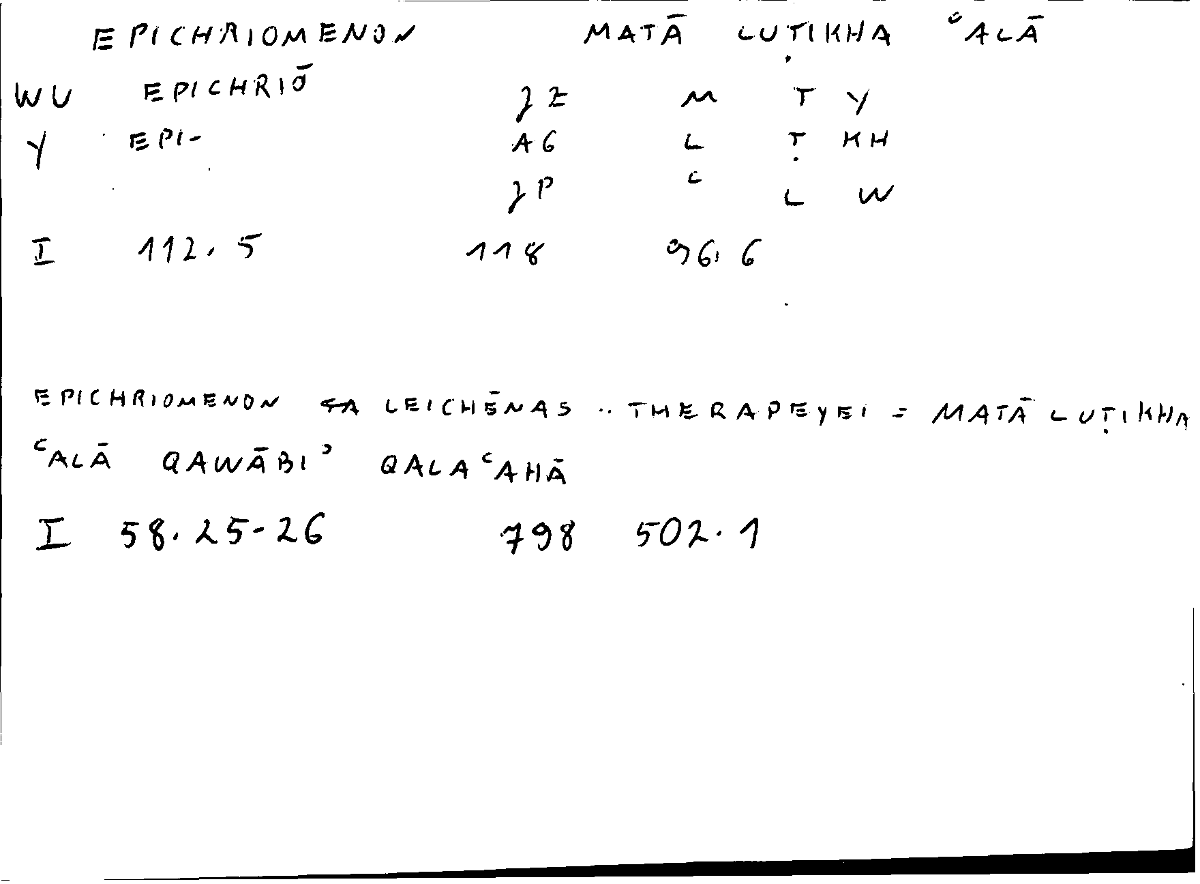 EPICHRIOMENON MATĀ LUṬIKHA ʿALĀ
WU EPICHRIŌ JZ M T Y
Y EPI- AG L Ṭ KH
JP ʿ L W
I 112.5 118 96.6
EPICHRIOMENON LEICHĒNAS .. THERAPEYEI = MATĀ LUṬIKHA
ʿALĀ QAWĀBIʾ QALAʿAHĀ
I 58.25-26 798 502.1